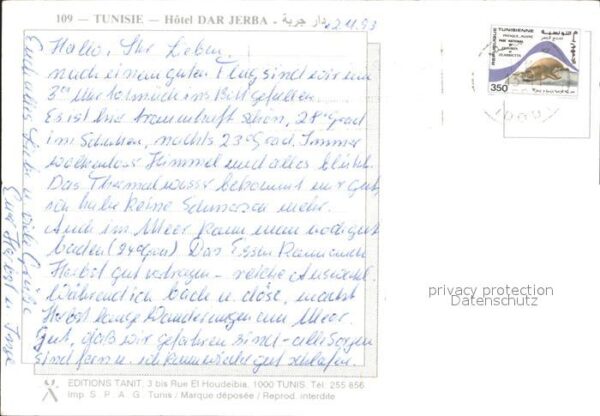 109 — TUNISIE — Hôtel DAR JERBA - دار جربة
2.11.93
Hallo, Ihr Lieben.
nach einem guten Flug sind wir um
3 Uhr todmüde ins Bett gefallen.
Es ist hier traumhaft schön, 28 Grad
im Schatten, nachts 23 Grad. Immer
wolkenloser Himmel und alles blüht.
Das Thermalwasser bekommt mir gut,
ich habe keine Schmerzen mehr.
Auch im Meer kann man noch gut
baden (24 Grad). Das Essen kann auch
Herbst gut vertragen - reiche Auswahl.
Während ich lese u. döse, macht
Herbst lange Wanderungen am Meer.
Gut, daß wir gefahren sind - alle Sorgen
sind fern u. ich kann wieder gut schlafen.
Euch alles Liebe u. viele Grüße
Eure Herbst u. Inge
REPUBLIQUE TUNISIENNE
350
privacy protection
Datenschutz
EDITIONS TANIT, 3 bis Rue El Houdeibia, 1000 TUNIS. Tél: 255 856
Imp. S. P. A. G. Tunis / Marque déposée / Reprod. interdite